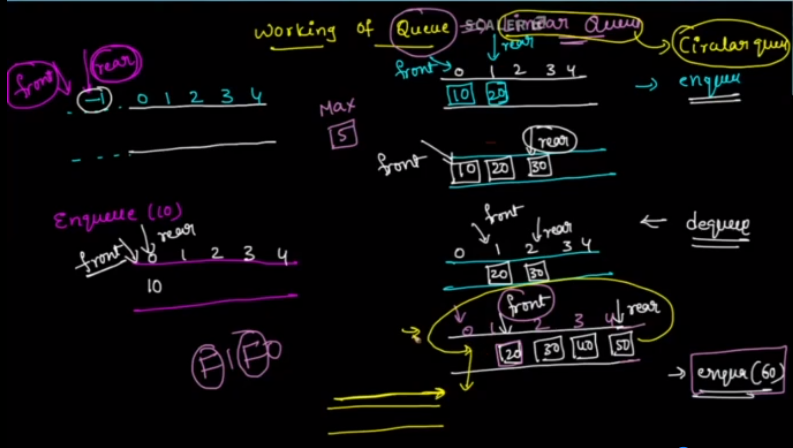 Working of Queue SCALER Linear Queue
Cirular queu
front rear
-1 0 1 2 3 4
Max
5
front rear
0 1 2 3 4
10 20
enqueu
front rear
10 20 30
Enqueue (10)
front rear
0 1 2 3 4
10
front rear
0 1 2 3 4
20 30
dequeue
front rear
0 1 2 3 4
20 30 40 50
enqueu(60)
FIFO